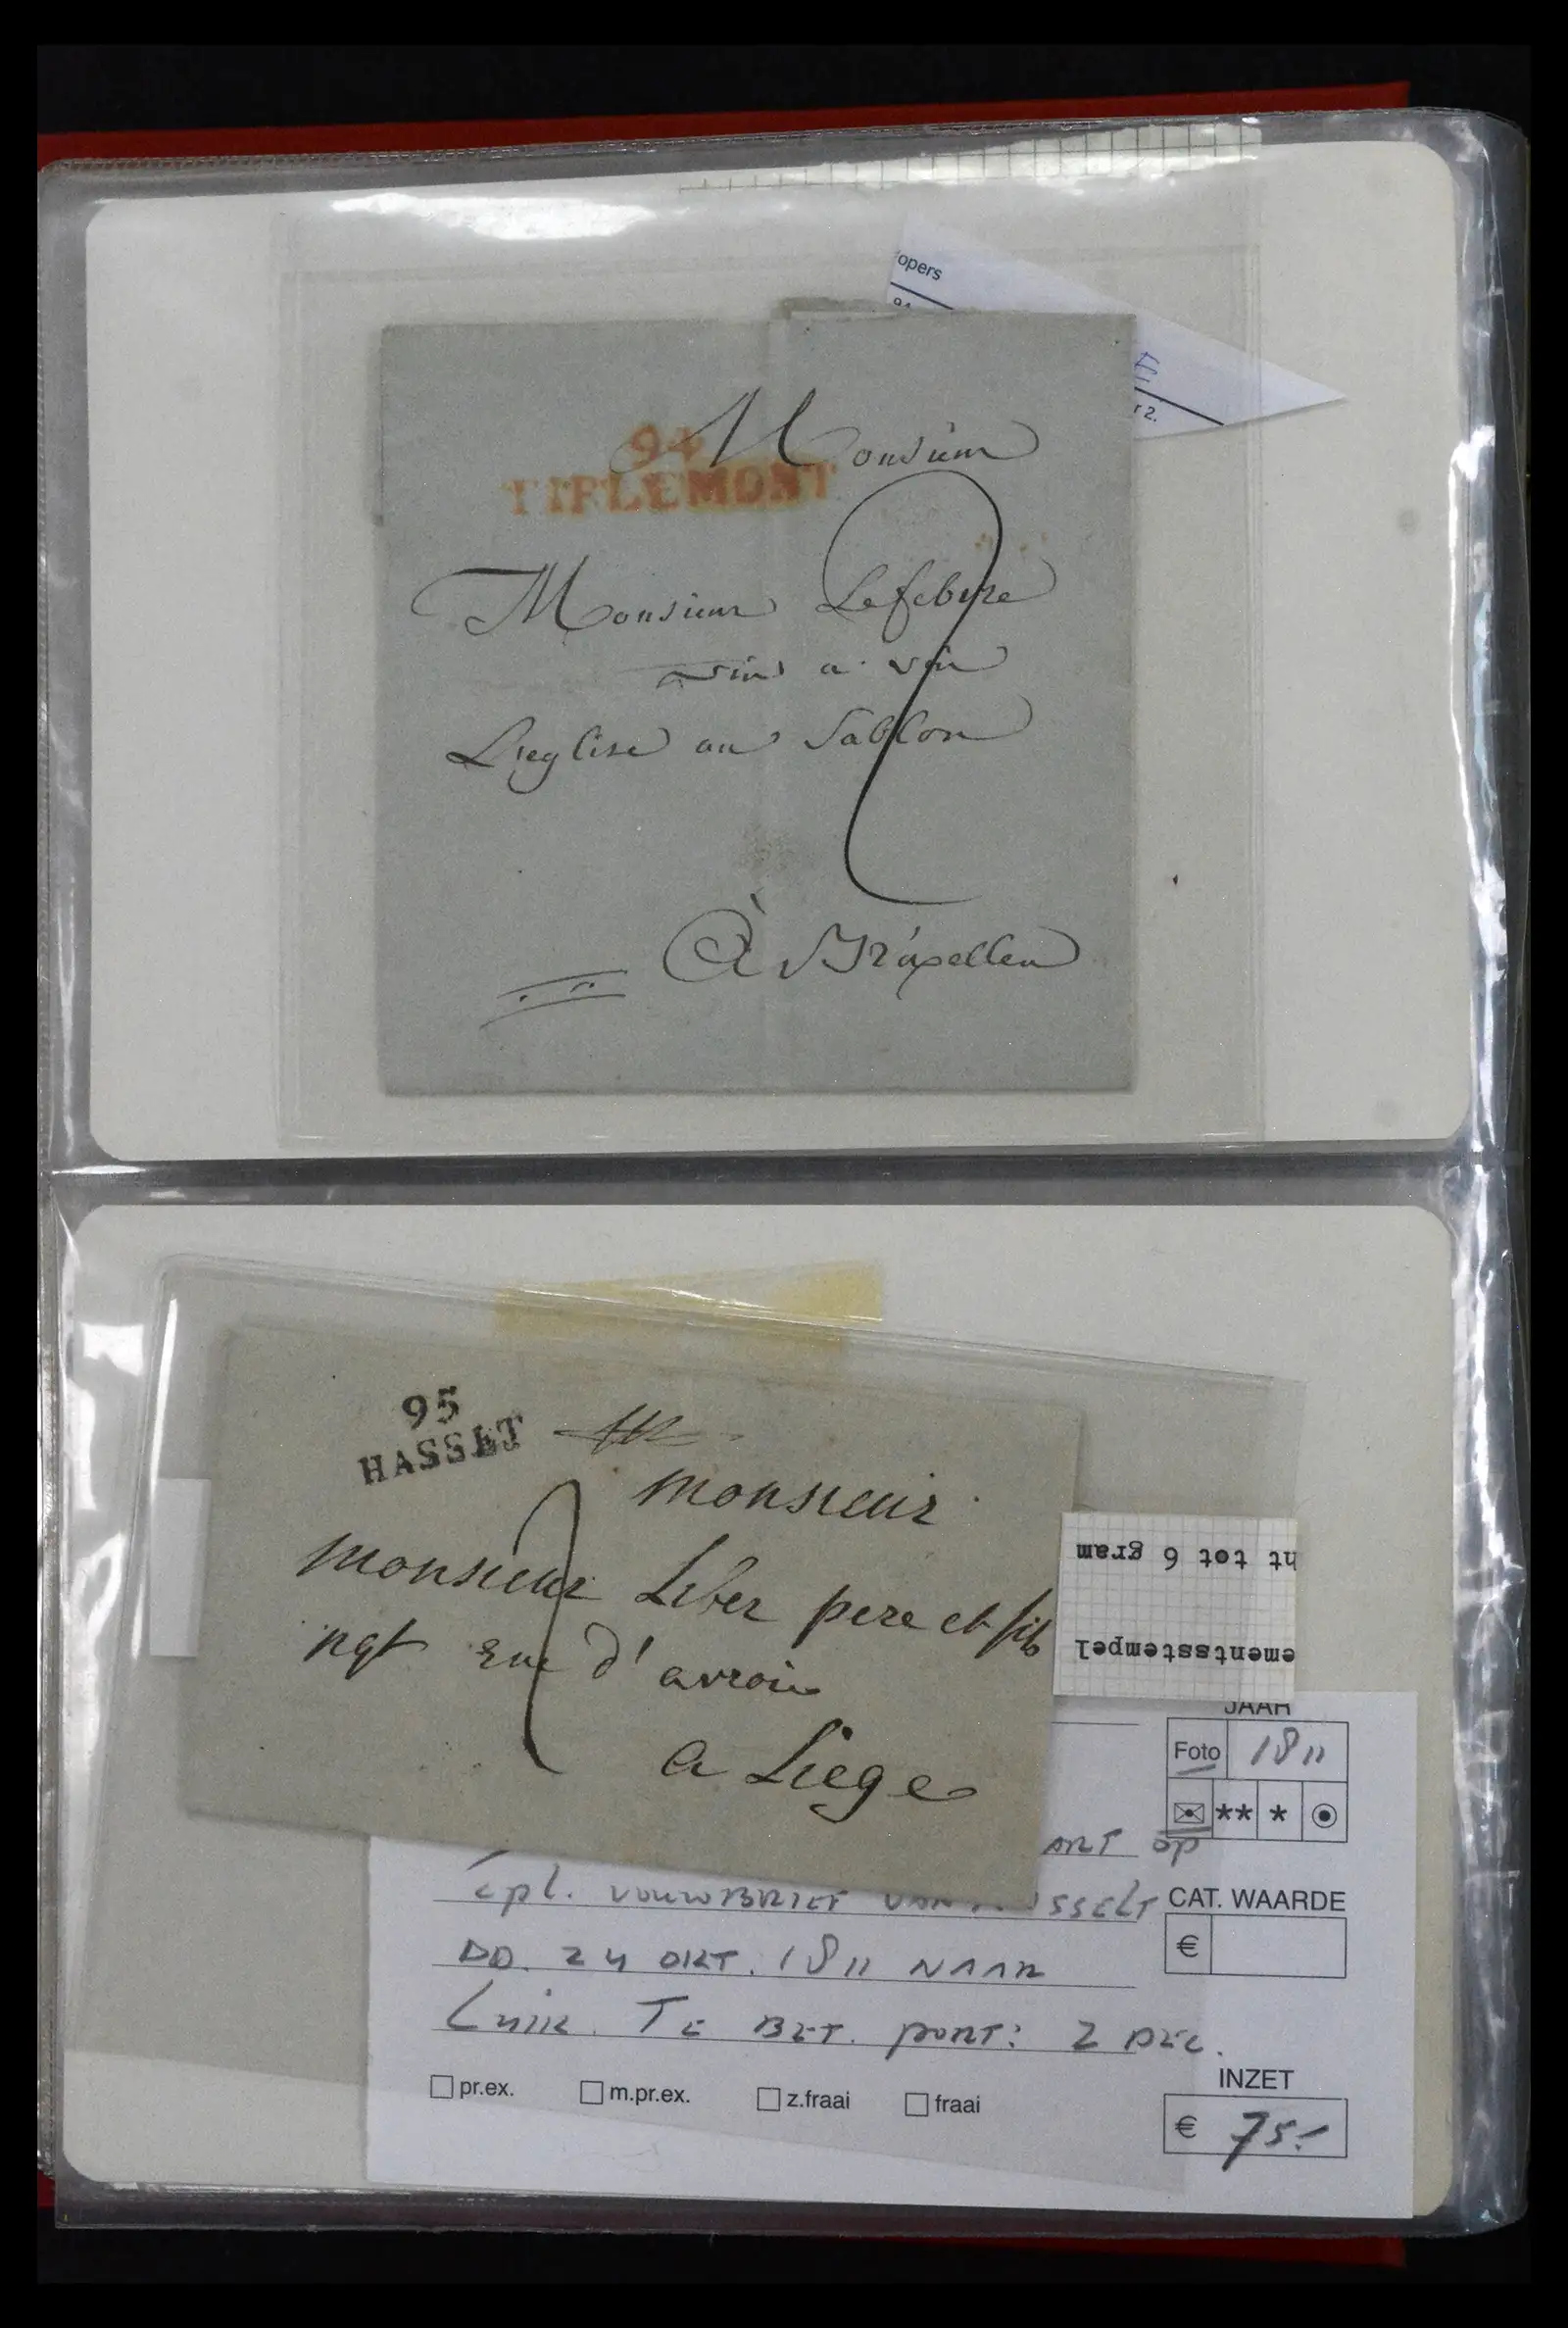 opers
r 2.
94
TIRLEMONT
Monsieur
Monsieur Lefebvre
vis a vis
L'eglise au Sablon
À Bruxelles
2
95
HASSET
monsieur
monsieur Liber pere et fils
ngt rue d'avroi
a Liege
2
ht tot 6 gram
ementsstempel
JAAR
Foto 1811
** *
ART op
cpl. VOUWBRIEF VAN HASSELT
CAT. WAARDE
€
DD. 24 OKT. 1811 NAAR
Luik. TE BET. PORT: 2 DEC.
pr.ex. m.pr.ex. z.fraai fraai
INZET
€ 75.-